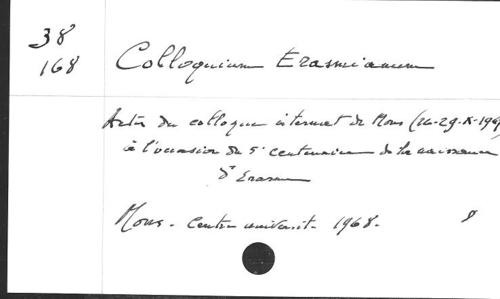 38
168
Colloquium Erasmianum
Actes du colloque internat de Mons (26-29-X-196
à l'occasion du 5e centenaire de la naissance
d'Erasme
Mons. Centre universit. 1968. 8